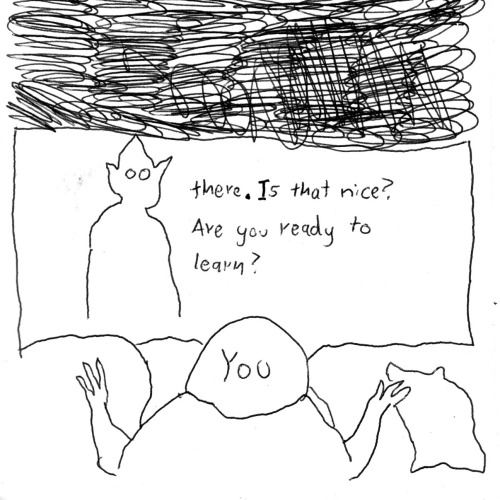 there. Is that nice?
Are you ready to
learn?
You